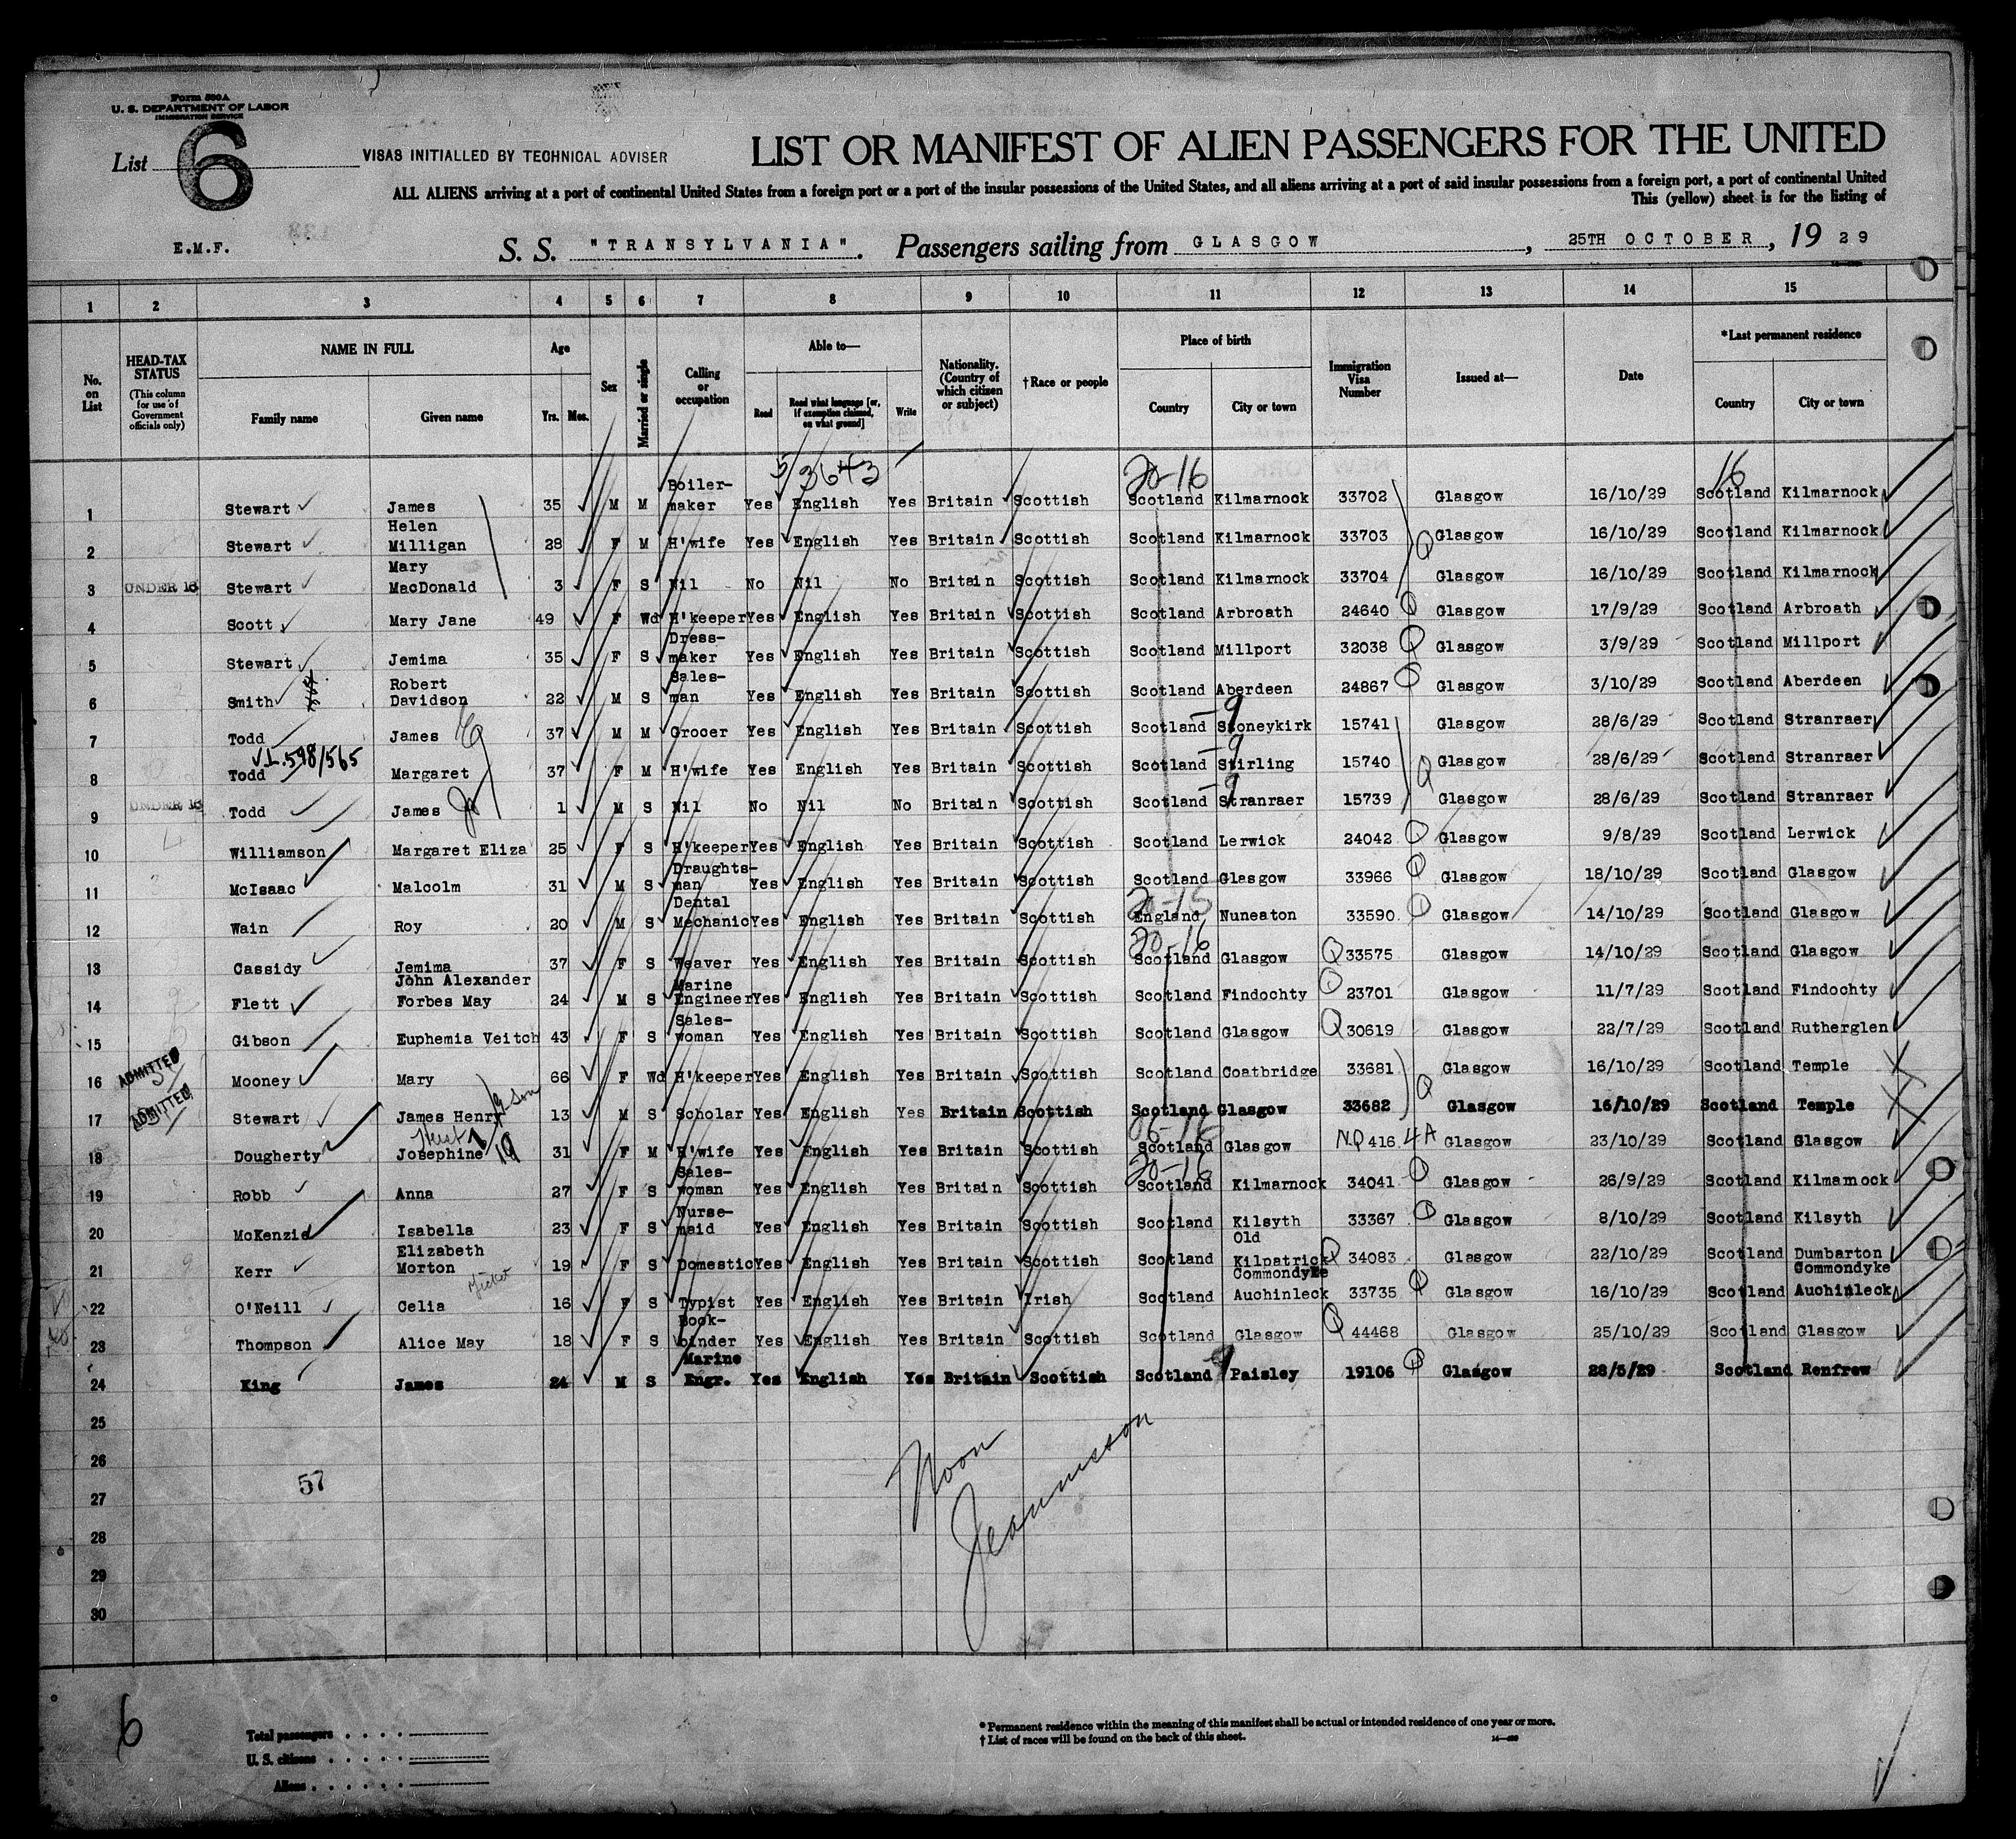 Form 500A
U. S. DEPARTMENT OF LABOR
IMMIGRATION SERVICE
List 6
VISAS INITIALLED BY TECHNICAL ADVISER
LIST OR MANIFEST OF ALIEN PASSENGERS FOR THE UNITED
ALL ALIENS arriving at a port of continental United States from a foreign port or a port of the insular possessions of the United States, and all aliens arriving at a port of said insular possessions from a foreign port, a port of continental United
This (yellow) sheet is for the listing of
E.M.F.
S. S. "TRANSYLVANIA". Passengers sailing from GLASGOW, 25TH OCTOBER, 1929
1 2 3 4 5 6 7 8 9 10 11 12 13 14 15
No. on List
HEAD-TAX STATUS (This column for use of Government officials only)
NAME IN FULL
Family name Given name
Age
Yrs. Mos.
Sex
Married or single
Calling or occupation
Able to—
Read
Read what language [or, if exemption claimed, on what ground]
Write
Nationality. (Country of which citizen or subject)
†Race or people
Place of birth
Country City or town
Immigration Visa Number
Issued at—
Date
*Last permanent residence
Country City or town
5/3643 20-16 16
1 Stewart James 35 M M Boiler-maker Yes English Yes Britain Scottish Scotland Kilmarnock 33702 Glasgow 16/10/29 Scotland Kilmarnock
2 Stewart Helen Milligan 28 F M H'wife Yes English Yes Britain Scottish Scotland Kilmarnock 33703 Glasgow 16/10/29 Scotland Kilmarnock
3 UNDER 16 Stewart Mary MacDonald 3 F S Nil No Nil No Britain Scottish Scotland Kilmarnock 33704 Glasgow 16/10/29 Scotland Kilmarnock
4 Scott Mary Jane 49 F Wd H'keeper Yes English Yes Britain Scottish Scotland Arbroath 24640 Glasgow 17/9/29 Scotland Arbroath
5 Stewart Jemima 35 F S Dress-maker Yes English Yes Britain Scottish Scotland Millport 32038 Glasgow 3/9/29 Scotland Millport
6 Smith Robert Davidson 22 M S Sales-man Yes English Yes Britain Scottish Scotland Aberdeen 24867 Glasgow 3/10/29 Scotland Aberdeen
7 Todd James 37 M M Grocer Yes English Yes Britain Scottish Scotland -9 Stoneykirk 15741 Glasgow 28/6/29 Scotland Stranraer
V.L.598/565
8 Todd Margaret 37 F M H'wife Yes English Yes Britain Scottish Scotland -9 Stirling 15740 Glasgow 28/6/29 Scotland Stranraer
9 UNDER 16 Todd James 1 M S Nil No Nil No Britain Scottish Scotland -9 Stranraer 15739 Glasgow 28/6/29 Scotland Stranraer
10 Williamson Margaret Eliza 25 F S H'keeper Yes English Yes Britain Scottish Scotland Lerwick 24042 Glasgow 9/8/29 Scotland Lerwick
11 McIsaac Malcolm 31 M S Draughts-man Yes English Yes Britain Scottish Scotland Glasgow 33966 Glasgow 18/10/29 Scotland Glasgow
20-15
12 Wain Roy 20 M S Dental Mechanic Yes English Yes Britain Scottish England Nuneaton 33590 Glasgow 14/10/29 Scotland Glasgow
20-16
13 Cassidy Jemima 37 F S Weaver Yes English Yes Britain Scottish Scotland Glasgow 33575 Glasgow 14/10/29 Scotland Glasgow
14 Flett John Alexander Forbes May 24 M S Marine Engineer Yes English Yes Britain Scottish Scotland Findochty 23701 Glasgow 11/7/29 Scotland Findochty
15 Gibson Euphemia Veitch 43 F S Sales-woman Yes English Yes Britain Scottish Scotland Glasgow 30619 Glasgow 22/7/29 Scotland Rutherglen
16 ADMITTED Mooney Mary 66 F Wd H'keeper Yes English Yes Britain Scottish Scotland Coatbridge 33681 Glasgow 16/10/29 Scotland Temple
17 ADMITTED Stewart James Henry 13 M S Scholar Yes English Yes Britain Scottish Scotland Glasgow 33682 Glasgow 16/10/29 Scotland Temple
18 Dougherty Josephine 31 F M H'wife Yes English Yes Britain Scottish Scotland Glasgow N.Q 416 4A Glasgow 23/10/29 Scotland Glasgow
20-16
19 Robb Anna 27 F S Sales-woman Yes English Yes Britain Scottish Scotland Kilmarnock 34041 Glasgow 26/9/29 Scotland Kilmamock
20 McKenzie Isabella 23 F S Nurse-maid Yes English Yes Britain Scottish Scotland Kilsyth 33367 Glasgow 8/10/29 Scotland Kilsyth
21 Kerr Elizabeth Morton 19 F S Domestic Yes English Yes Britain Scottish Scotland Old Kilpatrick 34083 Glasgow 22/10/29 Scotland Dumbarton
22 O'Neill Celia 16 F S Typist Yes English Yes Britain Irish Scotland Commondyke Auchinleck 33735 Glasgow 16/10/29 Scotland Commondyke Auchinleck
23 Thompson Alice May 18 F S Book-binder Yes English Yes Britain Scottish Scotland Glasgow 44468 Glasgow 25/10/29 Scotland Glasgow
24 King James 24 M S Marine Engr. Yes English Yes Britain Scottish Scotland 9 Paisley 19106 Glasgow 28/5/29 Scotland Renfrew
25
26
27
28
29
30
57
Noon
6
Total passengers
U. S. citizens
Aliens
* Permanent residence within the meaning of this manifest shall be actual or intended residence of one year or more.
† List of races will be found on the back of this sheet.